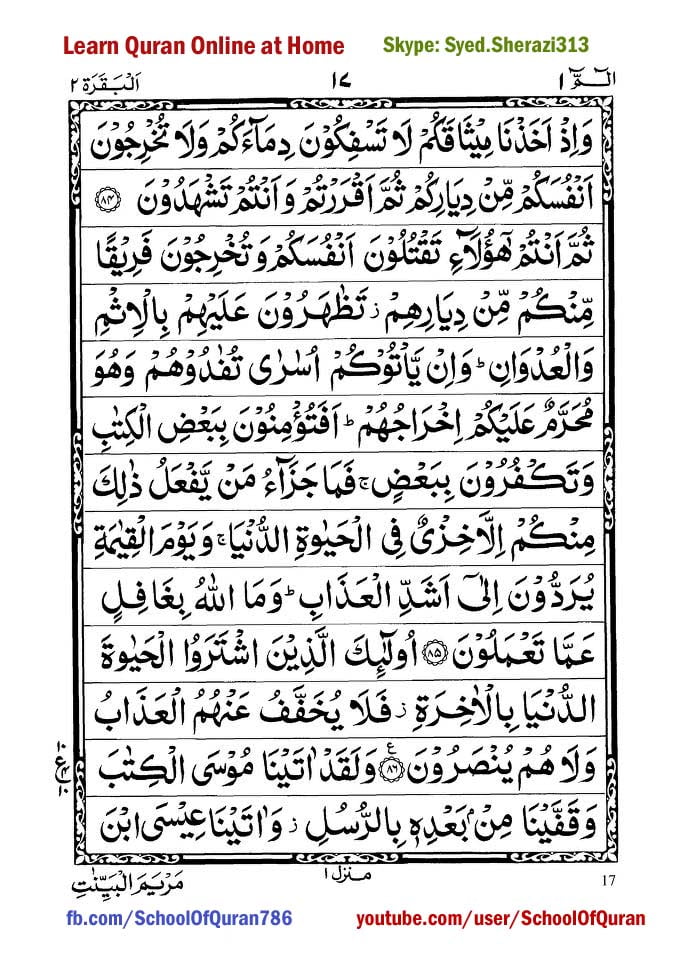 Learn Quran Online at Home Skype: Syed.Sherazi313
الٓمّٓ ١ ١٧ اَلْبَقَرَة ٢
وَاِذْ اَخَذْنَا مِيْثَاقَكُمْ لَا تَسْفِكُوْنَ دِمَآءَكُمْ وَلَا تُخْرِجُوْنَ
اَنْفُسَكُمْ مِّنْ دِيَارِكُمْ ثُمَّ اَقْرَرْتُمْ وَاَنْتُمْ تَشْهَدُوْنَ ۝٨٤
ثُمَّ اَنْتُمْ هٰٓؤُلَآءِ تَقْتُلُوْنَ اَنْفُسَكُمْ وَتُخْرِجُوْنَ فَرِيْقًا
مِّنْكُمْ مِّنْ دِيَارِهِمْ ز تَظٰهَرُوْنَ عَلَيْهِمْ بِالْاِثْمِ
وَالْعُدْوَانِ ؕ وَاِنْ يَّاْتُوْكُمْ اُسٰرٰى تُفٰدُوْهُمْ وَهُوَ
مُحَرَّمٌ عَلَيْكُمْ اِخْرَاجُهُمْ ؕ اَفَتُؤْمِنُوْنَ بِبَعْضِ الْكِتٰبِ
وَتَكْفُرُوْنَ بِبَعْضٍ ۚ فَمَا جَزَآءُ مَنْ يَّفْعَلُ ذٰلِكَ
مِنْكُمْ اِلَّا خِزْىٌ فِى الْحَيٰوةِ الدُّنْيَا ۚ وَيَوْمَ الْقِيٰمَةِ
يُرَدُّوْنَ اِلٰٓى اَشَدِّ الْعَذَابِ ؕ وَمَا اللّٰهُ بِغَافِلٍ
عَمَّا تَعْمَلُوْنَ ۝٨٥ اُولٰٓئِكَ الَّذِيْنَ اشْتَرَوُا الْحَيٰوةَ
الدُّنْيَا بِالْاٰخِرَةِ ز فَلَا يُخَفَّفُ عَنْهُمُ الْعَذَابُ
وَلَا هُمْ يُنْصَرُوْنَ ۝٨٦ ع وَلَقَدْ اٰتَيْنَا مُوْسَى الْكِتٰبَ
١٠ ع ٤ ١٠
وَقَفَّيْنَا مِنْۢ بَعْدِهٖ بِالرُّسُلِ ز وَاٰتَيْنَا عِيْسَى ابْنَ
17 منزل ١ مَرْيَمَ الْبَيِّنٰتِ
fb.com/SchoolOfQuran786 youtube.com/user/SchoolOfQuran